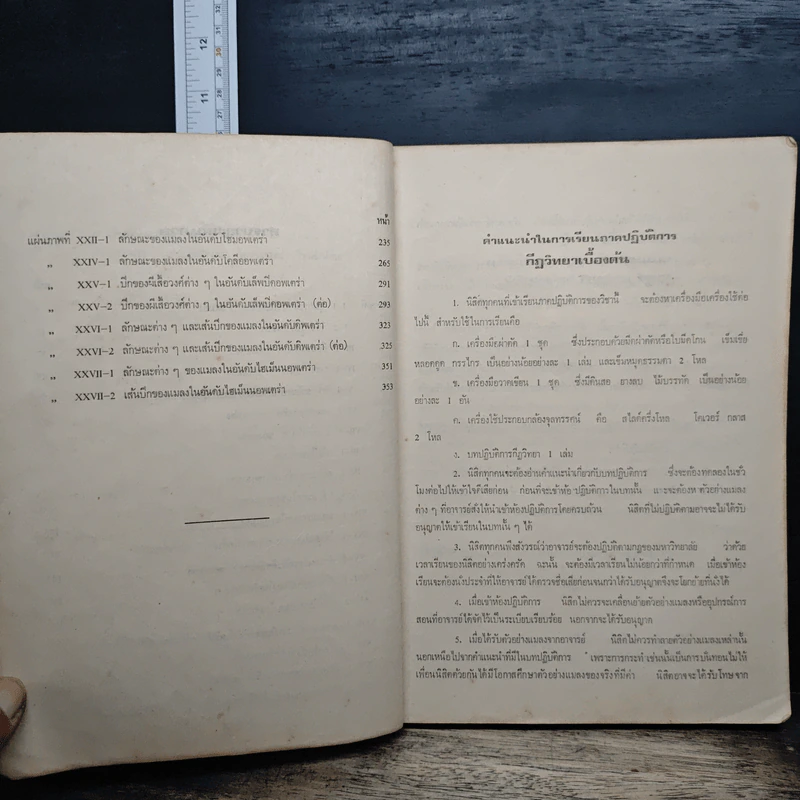 12
11
หน้า
แผ่นภาพที่ XXII-1 ลักษณะของแมลงในอันดับโฮมอพเคร่า 235
„ XXIV-1 ลักษณะของแมลงในอันดับโคลีออพเคร่า 265
„ XXV-1 ปีกของผีเสื้อวงศ์ต่าง ๆ ในอันดับเล็พบีคอพเคร่า 291
„ XXV-2 ปีกของผีเสื้อวงศ์ต่าง ๆ ในอันดับเล็พบีคอพเคร่า (ต่อ) 293
„ XXVI-1 ลักษณะต่าง ๆ และเส้นปีกของแมลงในอันดับดิพเคร่า 323
„ XXVI-2 ลักษณะต่าง ๆ และเส้นปีกของแมลงในอันดับดิพเคร่า (ต่อ) 325
„ XXVII-1 ลักษณะต่าง ๆ ของแมลงในอันดับไฮเม็นนอพเคร่า 351
„ XXVII-2 เส้นปีกของแมลงในอันดับไฮเม็นนอพเคร่า 353
คำแนะนำในการเรียนภาคปฏิบัติการ
กีฏวิทยาเบื้องต้น
1. นิสิตทุกคนที่เข้าเรียนภาคปฏิบัติการของวิชานี้ จะต้องหาเครื่องมือเครื่องใช้ต่อ
ไปนี้ สำหรับใช้ในการเรียนคือ
ก. เครื่องมือผ่าตัด 1 ชุด ซึ่งประกอบด้วยมีดผ่าตัดหรือใบมีดโกน เข็มเขี่ย
หลอดดูด กรรไกร เป็นอย่างน้อยอย่างละ 1 เล่ม และเข็มหมุดธรรมดา 2 โหล
ข. เครื่องมือวาดเขียน 1 ชุด ซึ่งมีดินสอ ยางลบ ไม้บรรทัด เป็นอย่างน้อย
อย่างละ 1 อัน
ค. เครื่องใช้ประกอบกล้องจุลทรรศน์ คือ สไลด์ครึ่งโหล โคเวอร์ กลาส
2 โหล
ง. บทปฏิบัติการกีฏวิทยา 1 เล่ม
2. นิสิตทุกคนจะต้องอ่านคำแนะนำเกี่ยวกับบทปฏิบัติการ ซึ่งจะต้องทดลองในชั่ว
โมงต่อไปให้เข้าใจดีเสียก่อน ก่อนที่จะเข้าห้องปฏิบัติการในบทนั้น และจะต้องหาตัวอย่างแมลง
ต่าง ๆ ที่อาจารย์สั่งให้นำเข้าห้องปฏิบัติการโดยครบถ้วน นิสิตที่ไม่ปฏิบัติตามอาจจะไม่ได้รับ
อนุญาตให้เข้าเรียนในบทนั้น ๆ ได้
3. นิสิตทุกคนพึงสังวรณ์ว่าอาจารย์จะต้องปฏิบัติตามกฎของมหาวิทยาลัย ว่าด้วย
เวลาเรียนของนิสิตอย่างเคร่งครัด ฉะนั้น จะต้องมีเวลาเรียนไม่น้อยกว่าที่กำหนด เมื่อเข้าห้อง
เรียนจะต้องนั่งประจำที่ให้อาจารย์ได้ตรวจชื่อเสียก่อนจนกว่าได้รับอนุญาตจึงจะโยกย้ายที่นั่งได้
4. เมื่อเข้าห้องปฏิบัติการ นิสิตไม่ควรจะเคลื่อนย้ายตัวอย่างแมลงหรืออุปกรณ์การ
สอนที่อาจารย์ได้จัดไว้เป็นระเบียบเรียบร้อย นอกจากจะได้รับอนุญาต
5. เมื่อได้รับตัวอย่างแมลงจากอาจารย์ นิสิตไม่ควรทำลายตัวอย่างแมลงเหล่านั้น
นอกเหนือไปจากคำแนะนำที่มีในบทปฏิบัติการ เพราะการกระทำเช่นนั้นเป็นการบั่นทอนไม่ให้
เพื่อนนิสิตด้วยกันได้มีโอกาสศึกษาตัวอย่างแมลงของจริงที่มีค่า นิสิตอาจจะได้รับโทษจาก